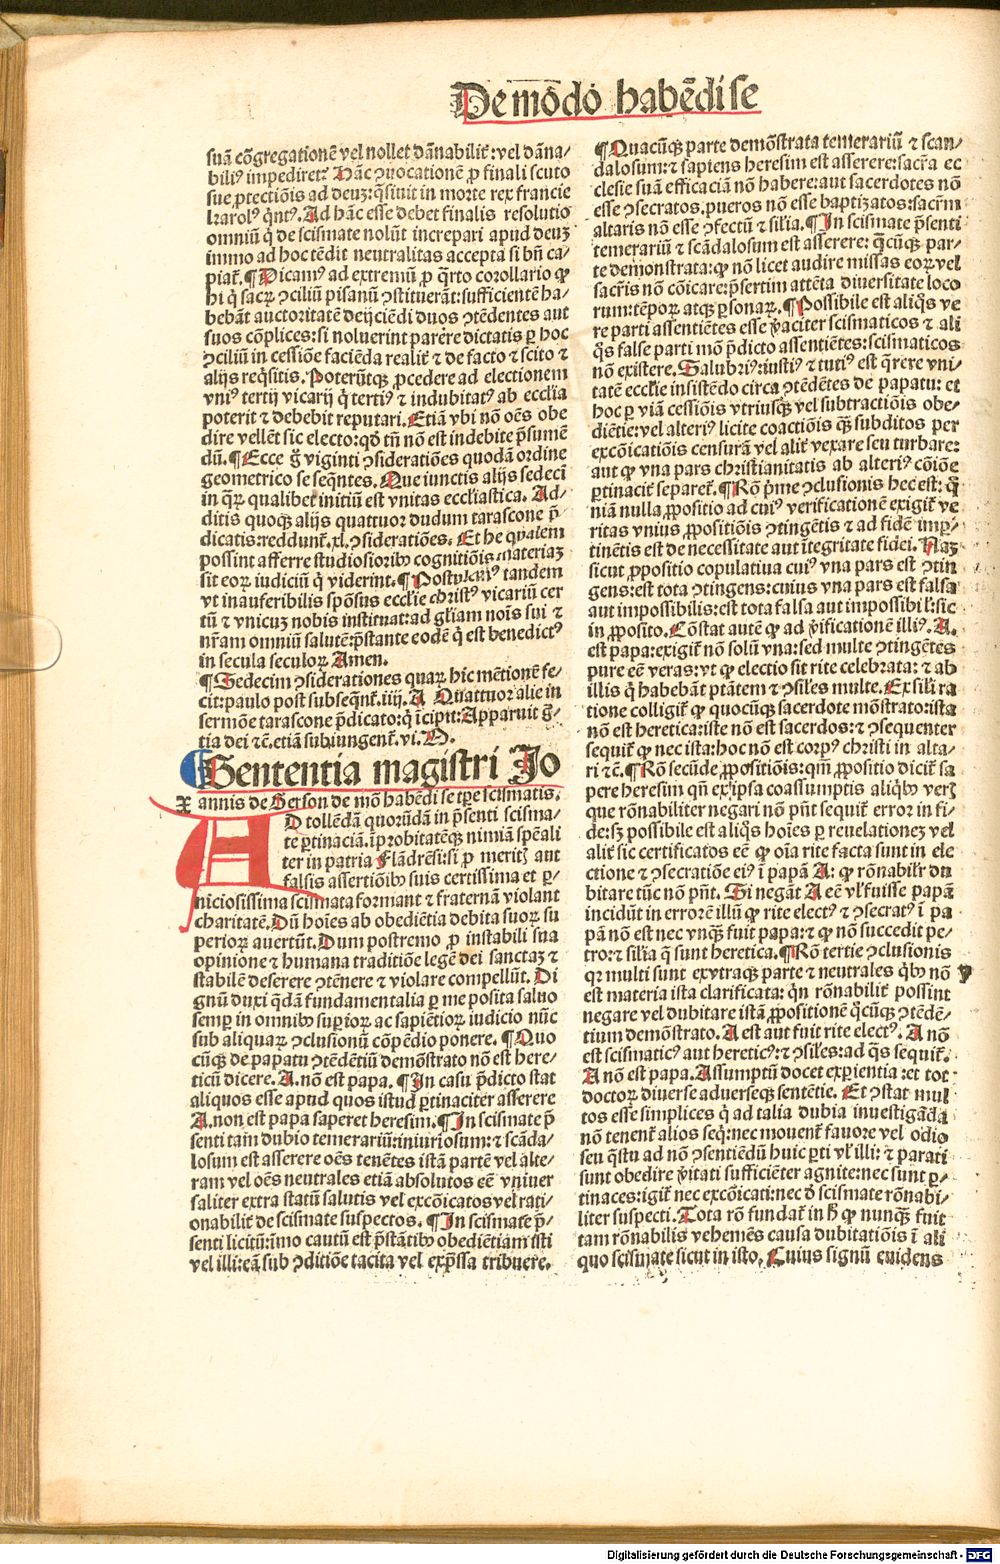 De mōdo habēdi se
suā cōgregationē vel nollet dānabilit̄: vel dāna/
biliꝰ impediret? Hāc ꝓuocationē ꝓ finali scuto
sue ꝓtectiōis ad deuz: q̄siuit in morte rex francie
karolꝰ q̄ntꝰ. Ad hāc esse debet finalis resolutio
omniū q̇ de scismate nolūt increpari apud deuz
immo ad hoc tēdit neutralitas accepta si bn̄ ca/
piat̄. ¶ Dicamꝰ ad extremū ꝓ q̄rto corollario ꝙ
hi q̇ sacꝝ ꝯciliū pisanū ꝯstituerāt: sufficientē ha/
bebāt auctoritatē deijciēdi duos ꝯtēdentes aut
suos cōplices: si noluerint parere dictatis ꝑ hoc
ꝯciliū in cessiōe faciēda realit̄ ⁊ de facto ⁊ scito ⁊
alijs reqͥsitis. Poterūtqꝫ ꝓcedere ad electionem
vniꝰ tertij vicarij q̇ tertiꝰ ⁊ indubitatꝰ ab ecclīa
poterit ⁊ debebit reputari. Etiā vbi nō oēs obe
dire vellēt sic electo: qd̄ tn̄ nō est indebite p̄sumē
dū. ¶ Ecce ḡ viginti ꝯsideratiōes quodā ordine
geometrico se seqn̄tes. Que iunctis alijs sedecī
in qͥbꝫ qualibet initiū est vnitas eccliastica. Ad/
ditis quoqꝫ alijs quattuor dudum tarascone p̄
dicatis: reddunt̄. xl. ꝯsideratiōes. Et he qualem
possint afferre studiosioribꝰ cognitiōis materiaz
sit eoꝝ iudiciū q̇ viderint. ¶ Postulamꝰ tandem
vt inauferibilis spōsus ecclie christꝰ vicariū cer
tū ⁊ vnicuz nobis instituat: ad gl̄iam nois sui ⁊
nr̄am omniū salutē: p̄stante eodē q̇ est benedictꝰ
in secula seculoꝝ Amen.
¶ Sedecim ꝯsiderationes quaꝝ hic mētionē fe/
cit: paulo post subseqn̄t. iiij. A Quattuor alie in
sermōe tarascone p̄dicato: q̇ īcipit: Apparuit ḡ/
tia dei ⁊c̄. etiā subiungent̄. vi. O.
¶ Sententia magistri Jo
annis de Gerson de mō habēdi se tꝑe scismatis.
AD tollēdā quorūdā in p̄senti scisma/
te ꝑtinaciā. īprobitatēqꝫ nimiā spēali
ter in patria Flādrēsi: si ꝓ meritꝭ aut
falsis assertiōibꝰ suis certissima et ꝑ/
niciosissima scismata formant ⁊ fraternā violant
charitatē. Dū hoīes ab obediētia debita suoꝝ su
perioꝝ auertūt. Dum postremo ꝓ instabili sua
opinione ⁊ humana traditiōe legē dei sanctaz ⁊
stabilē deserere ꝯtēnere ⁊ violare compellūt. Di
gnū duxi q̄dā fundamentalia ꝑ me posita saluo
semꝑ in omnibꝰ suꝑioꝝ ac sapiētioꝝ iudicio nūc
sub aliquaꝝ ꝯclusionū cōpēdio ponere. ¶ Quo
cūqꝫ de papatu ꝯtēdētiū demōstrato nō est here/
ticū dicere. A. nō est papa. ¶ In casu p̄dicto stat
aliquos esse apud quos istud ꝑtinaciter asserere
A. non est papa saperet heresim. ¶ In scismate p̄
senti tam dubio temerariū: iniuriosum: ⁊ scāda/
losum est asserere oēs tenētes istā partē vel alte/
ram vel oēs neutrales etiā absolutos eē vniuer
saliter extra statū salutis vel excōicatos vel rati/
onabilit̄ de scismate suspectos. ¶ In scismate p̄/
senti licitū: īmo cautū est p̄stātibꝰ obediētiam isti
vel illi: eā sub ꝯditiōe tacita vel exp̄ssa tribuere.
¶ Quacūqꝫ parte demōstrata temerariū ⁊ scan/
dalosum: ⁊ sapiens heresim est asserere: sacr̄a ec
clesie suā efficaciā nō habere: aut sacerdotes nō
esse ꝯsecratos. pueros nō esse baptizatos: sacr̄m
altaris nō esse ꝯfectū ⁊ sīlia. ¶ In scismate p̄senti
temerariū ⁊ scādalosum est asserere: q̄cūqꝫ par/
te demonstrata: ꝙ nō licet audire missas eoꝝ vel
sacr̄is nō cōicare: p̄sertim attēta diuersitate loco
rum: tēpoꝝ atqꝫ ꝑsonaꝝ. ¶ Possibile est aliq̄s ve
re parti assentiētes esse ꝟaciter scismaticos ⁊ ali
q̄s false parti mō p̄dicto assentiētes: scismaticos
nō existere. Salubriꝰ: iustiꝰ ⁊ tutiꝰ est q̄rere vni
tatē ecclīe insistēdo circa ꝯtēdētes de papatu: et
hoc ꝑ viā cessiōis vtriusqꝫ vel subtractiōis obe/
diētie: vel alteriꝰ licite coactiōis qꝫ subditos per
excōicatiōis censurā vel alit̄ vexare seu turbare:
aut ꝙ vna pars christianitatis ab alteriꝰ cōiōe
ꝑtinacit̄ separet̄. ¶ Rō p̄me ꝯclusionis hec est: qm̄
niā nulla ꝓpositio ad cuiꝰ verificationē exigit̄ ve
ritas vnius ꝓpositiōis ꝯtingētis ⁊ ad fidē imꝑ/
tinētis est de necessitate aut ītegritate fidei. Naz
sicut ꝓpositio copulatiua cuiꝰ vna pars est ꝯtin
gens: est tota ꝯtingens: cuius vna pars est falsa
aut impossibilis: est tota falsa aut impossibil̄: sic
in ꝓposito. Cōstat autē ꝙ ad ꝟificationē illiꝰ. A.
est papa: exigit̄ nō solū vna: sed multe ꝯtingētes
pure eē veras: vt ꝙ electio sit rite celebrata: ⁊ ab
illis q̇ habebāt ptātem ⁊ ꝯsīles multe. Ex sīli ra
tione colligit̄ ꝙ quocūqꝫ sacerdote mōstrato: ista
nō est heretica: iste nō est sacerdos: ⁊ ꝯsequenter
sequit̄ ꝙ nec ista: hoc nō est corpꝰ christi in alta/
ri ⁊c̄. ¶ Rō secūde ꝓpositiōis: qm̄ ꝓpositio dicit̄ sa
pere heresim qn̄ ex ipsa coassumptis aliqͥbꝰ verꝭ
que rōnabiliter negari nō pn̄t sequit̄ error in fi/
de: sꝫ possibile est aliq̄s hoīes ꝑ reuelationez vel
alit̄ sic certificatos eē ꝙ oīa rite facta sunt in ele
ctione ⁊ ꝯsecratiōe eiꝰ ī papā A: ꝙ rōnabilr̄ du
bitare tūc nō pn̄t. Si negāt A eē vl̄ fuisse papā
incidūt in errorē illū ꝙ rite electꝰ ⁊ ꝯsecratꝰ ī pa
pā nō est nec vnqꝫ fuit papa: ⁊ ꝙ nō succedit pe/
tro: ⁊ sīlia q̄ sunt heretica. ¶ Rō tertie ꝯclusionis
qꝛ multi sunt ex vtraqꝫ parte ⁊ neutrales qͥbꝰ nō
est materia ista clarificata: qn̄ rōnabilit̄ possint
negare vel dubitare istā ꝓpositionē q̇cūqꝫ ꝯtēdē/
tium demōstrato. A est aut fuit rite electꝰ. A nō
est scismaticꝰ aut hereticꝰ: ⁊ ꝯsīles: ad q̄s sequit̄.
A nō est papa. Assumptū docet exꝑientia: et tot
doctoꝝ diuerse aduerseqꝫ sentētie. Et ꝯstat mul
tos esse simplices q̇ ad talia dubia inuestigāda
nō tenent̄ alios seq̇: nec mouent̄ fauore vel odio
seu q̄stu ad nō ꝯsentiēdū huic ꝑti vl̄ illi: ⁊ parati
sunt obedire ꝟitati sufficiēter agnite: nec sunt ꝑ/
tinaces: igit̄ nec excōicati: nec d̄ scismate rōnabi/
liter suspecti. Tota rō fundat̄ in h̄ ꝙ nunqꝫ fuit
tam rōnabilis vehemēs causa dubitatiōis ī ali
quo scismate sicut in isto. Cuius signū euidens
Digitalisierung gefördert durch die Deutsche Forschungsgemeinschaft - DFG